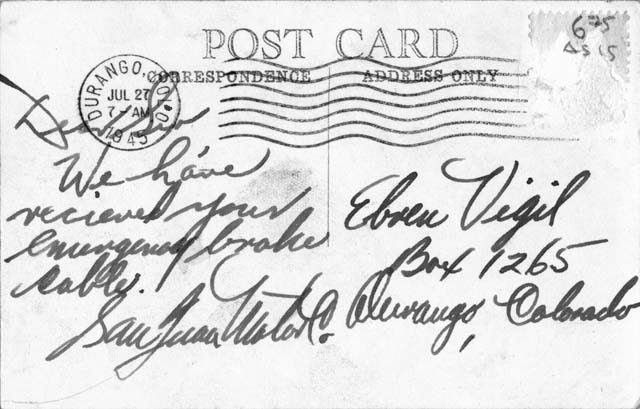 POST CARD
CORRESPONDENCE
ADDRESS ONLY
DURANGO, COLO.
JUL 27
7-AM
1945
Dear Sir
We have
recieved your
emergency brake
cable.
San Juan Motor Co.
Ebren Vigil
Box 1265
Durango, Colorado
675